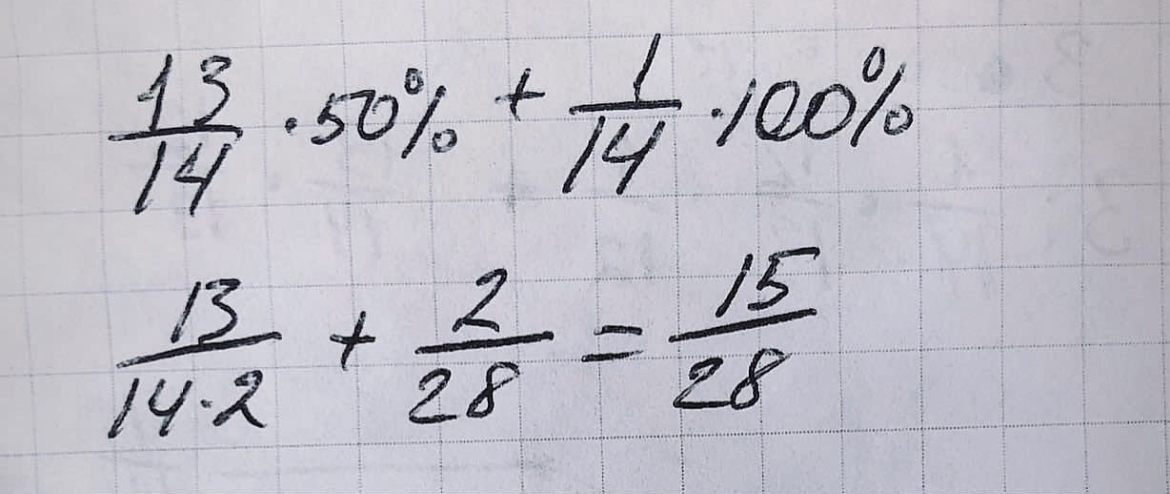 13/14 · 50% + 1/14 · 100%
13/(14·2) + 2/28 = 15/28